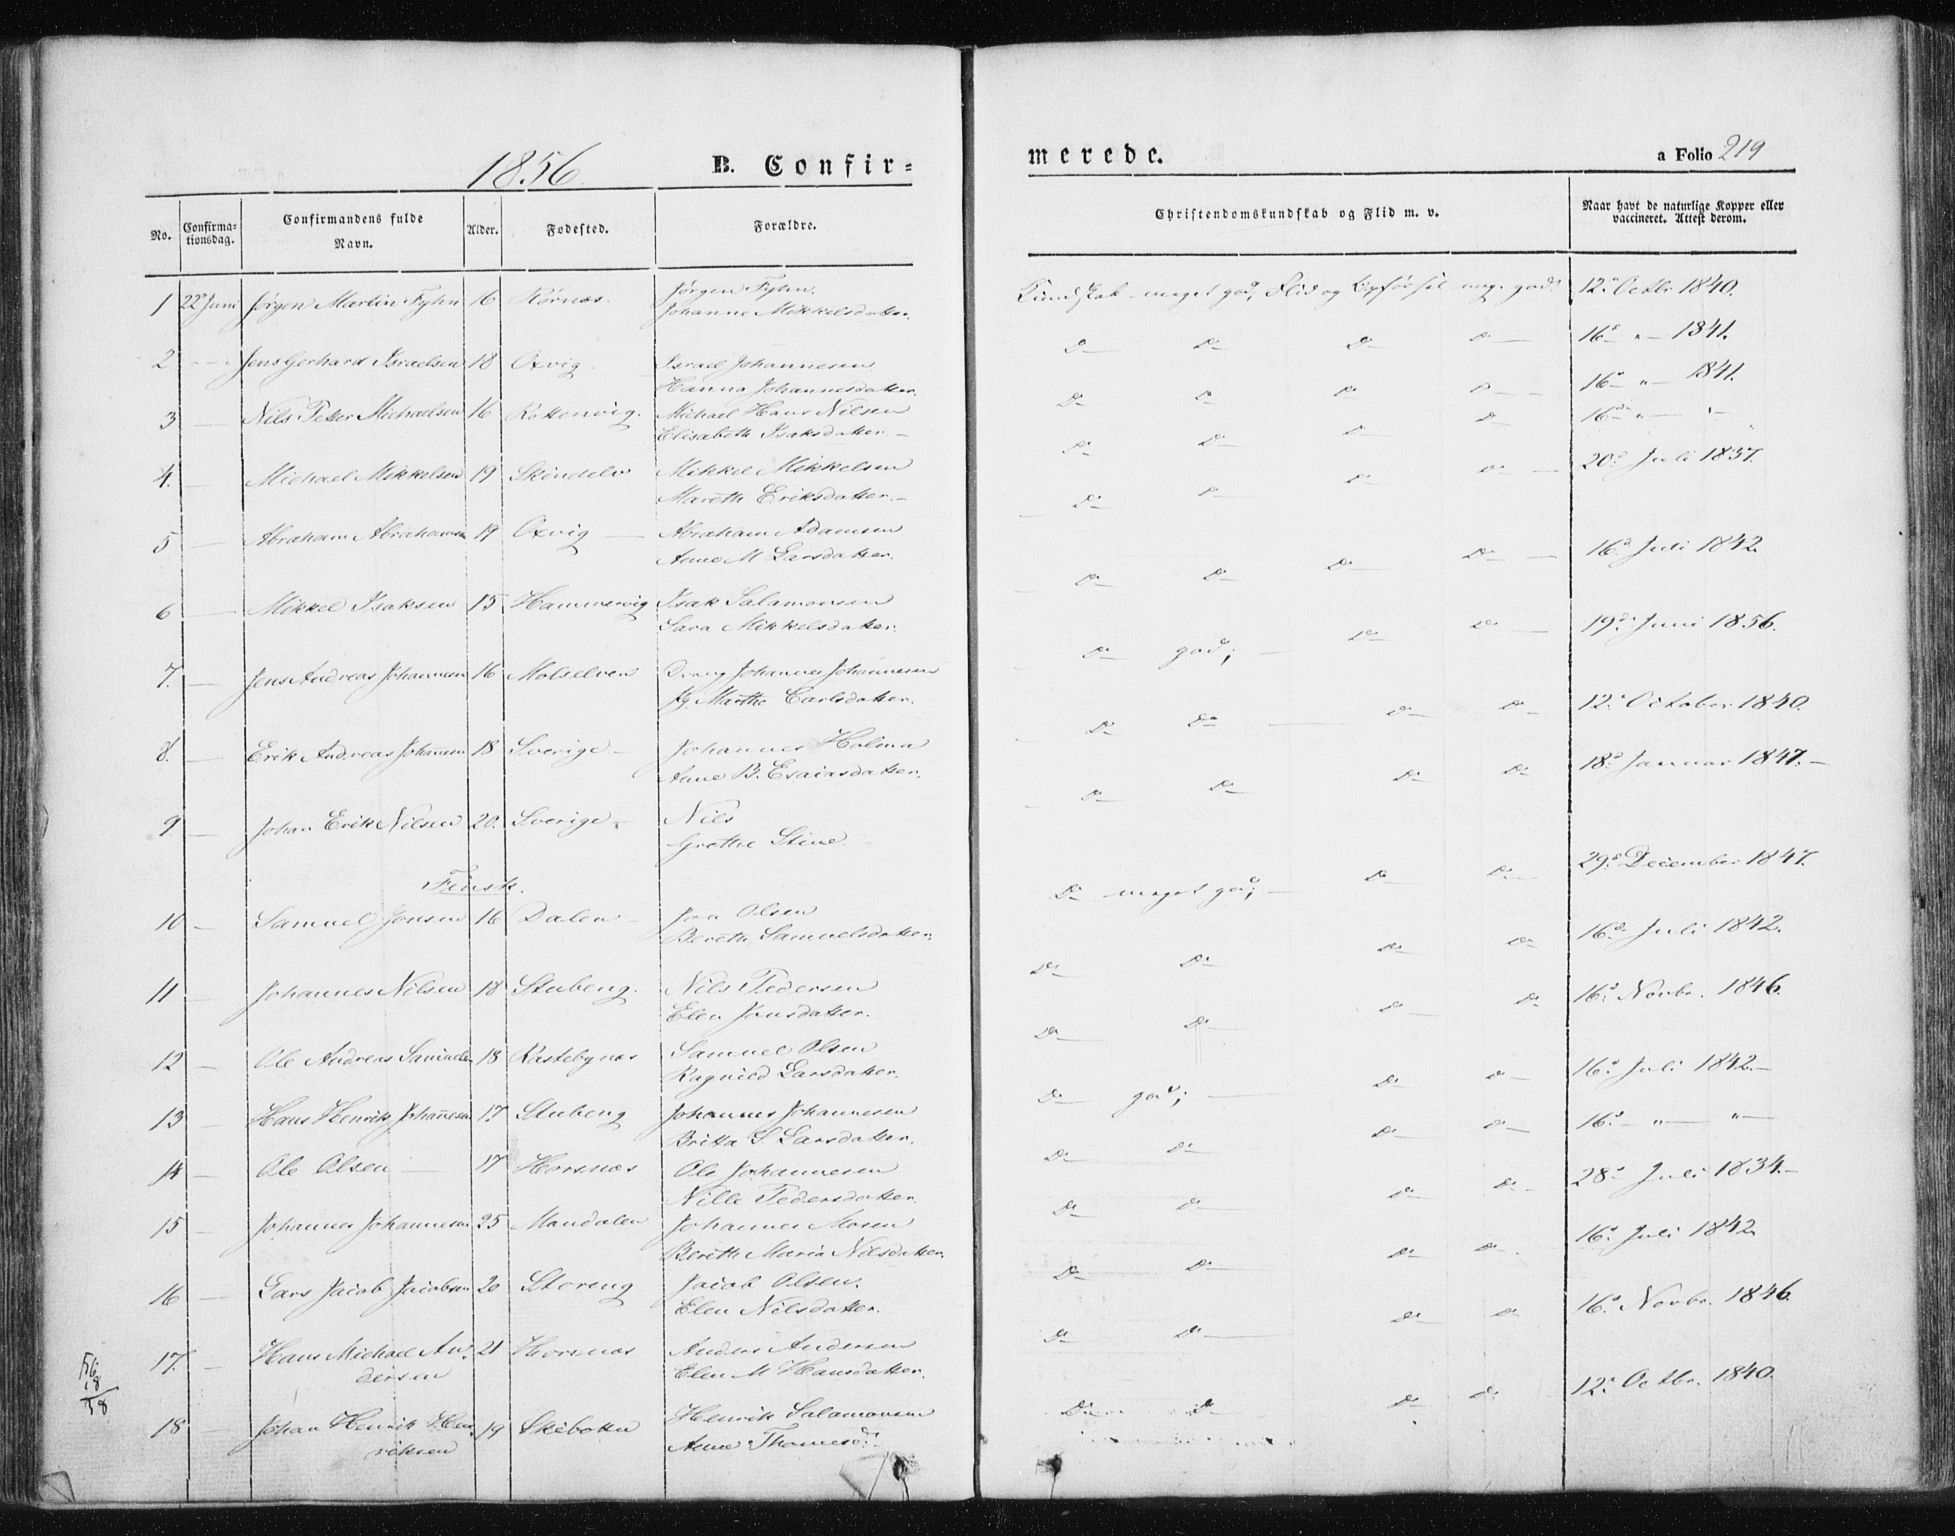 1856 B. Confir=
merede.
a Folio 219
No. Confirma=tionsdag. Confirmandens fulde Navn. Alder. Fødested. Forældre.
Christendomskundskab og Flid m. v. Naar havt de naturlige Kopper eller vaccineret. Attest derom.
1 22de Juni Jørgen Martin Fyhn 16 Rørnæs. Jørgen Fyhn.
Johanne Mikkelsdatter.
Kundskab meget god, Flid og Opførsel meg. god. 12te Octbr 1840.
2 Jens Gerhard Israelsen 18 Oxvig Israel Johannesen
Hanna Johannesdatter.
Do Do Do Do 16de " 1841.
3 Nils Peter Michaelsen 16 Rottenvig. Michael Hans Nilsen
Elisabeth Isaksdatter.
Do Do Do Do 16de " 1841.
Do Do Do Do 16de " "
4. Michael Mikkelsen 19 Skindelv Mikkel Mikkelsen
Mareth Eriksdatter.
Do Do Do Do 20de Juli 1837.
5 Abraham Abrahamsen 19 Oxvig Abraham Adamsen
Anne M Larsdatter.
Do Do Do Do 16de Juli 1842.
6 Mikkel Isaksen 15 Hammervig Isak Salamonsen
Sara Mikkelsdatter.
Do god; Do Do 19de Juni 1856.
7. Jens Andreas Johannesen 16 Malselven Johannes Johannesen
Pg. Marthe Carlsdatter.
Do Do Do Do 12te October 1840.
8. Erik Andreas Johansen 18 Sverige Johannes Holma
Anne B. Esaiasdatter.
Do Do Do Do 18de Januar 1847.
9 Johan Erik Nilsen 20. Sverige Nils
Grethe Stine.
Finsk.
Do meget god; Do Do 29de December 1847.
10 Samuel Jonsen 16 Dalen Jon Olsen
Bereth Samuelsdatter.
Do Do Do Do 16de Juli 1842.
11 Johannes Nilsen 18 Stubeng. Nils Pedersen
Elen Jonsdatter.
Do Do Do Do 16de Novbr. 1846.
12 Ole Andreas Samuelsen 18 Rastebynæs Samuel Olsen
Ragnild Larsdatter.
Do god; Do Do 16de Juli 1842.
13 Hans Henrik Johannesen 17 Stubeng Johannes Johannesen
Britta S. Larsdatter.
Do Do Do Do 16de " "
14 Ole Olsen 17 Horsnæs Ole Johannesen
Nille Pedersdatter.
Do Do Do Do 28de Juli 1834.
15 Johannes Johannesen 25 Mandalen Johannes Mosen
Berith Maria Nilsdatter.
Do Do Do Do 16de Juli 1842.
16 Lars Jacob Jacobsen 20 Storeng Jacob Olsen.
Elen Nilsdatter.
Do Do Do Do 16de Novbr. 1846.
17. Hans Michael An= 21 Horsnæs Anders Andersen
dersen Elen M Hansdatter.
Do Do Do Do 12te Octbr. 1840.
18 Johan Henrik Hen= 19 Skibotten Henrik Salamonsen
riksen Anne Thomesdr
56
18